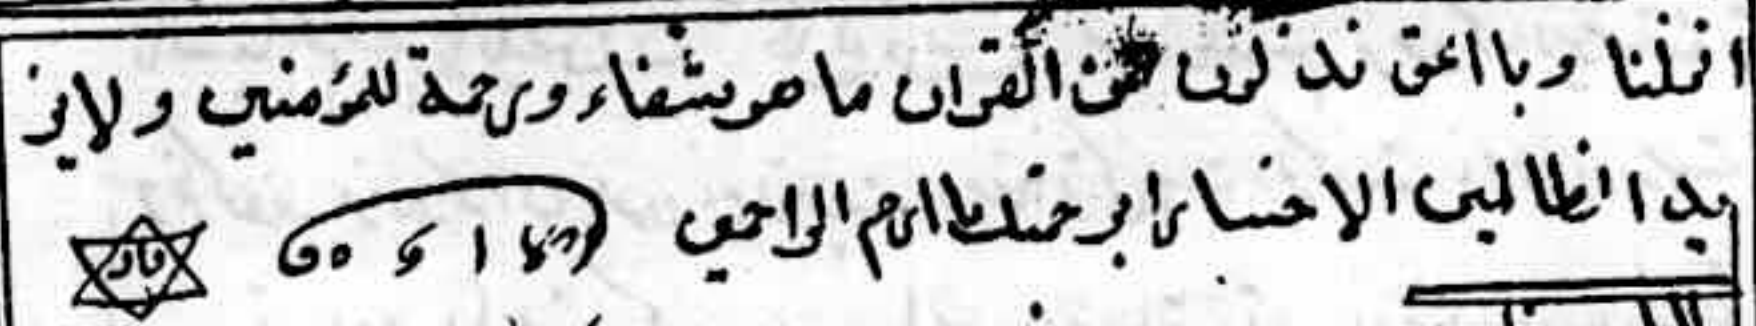 انزلنا وبااحق نذ لرن من القران ما هو شفاء ورحمة للمؤمنين ولايز
يد الظالمين الا خسارا برحمتك ياارحم الراحمين